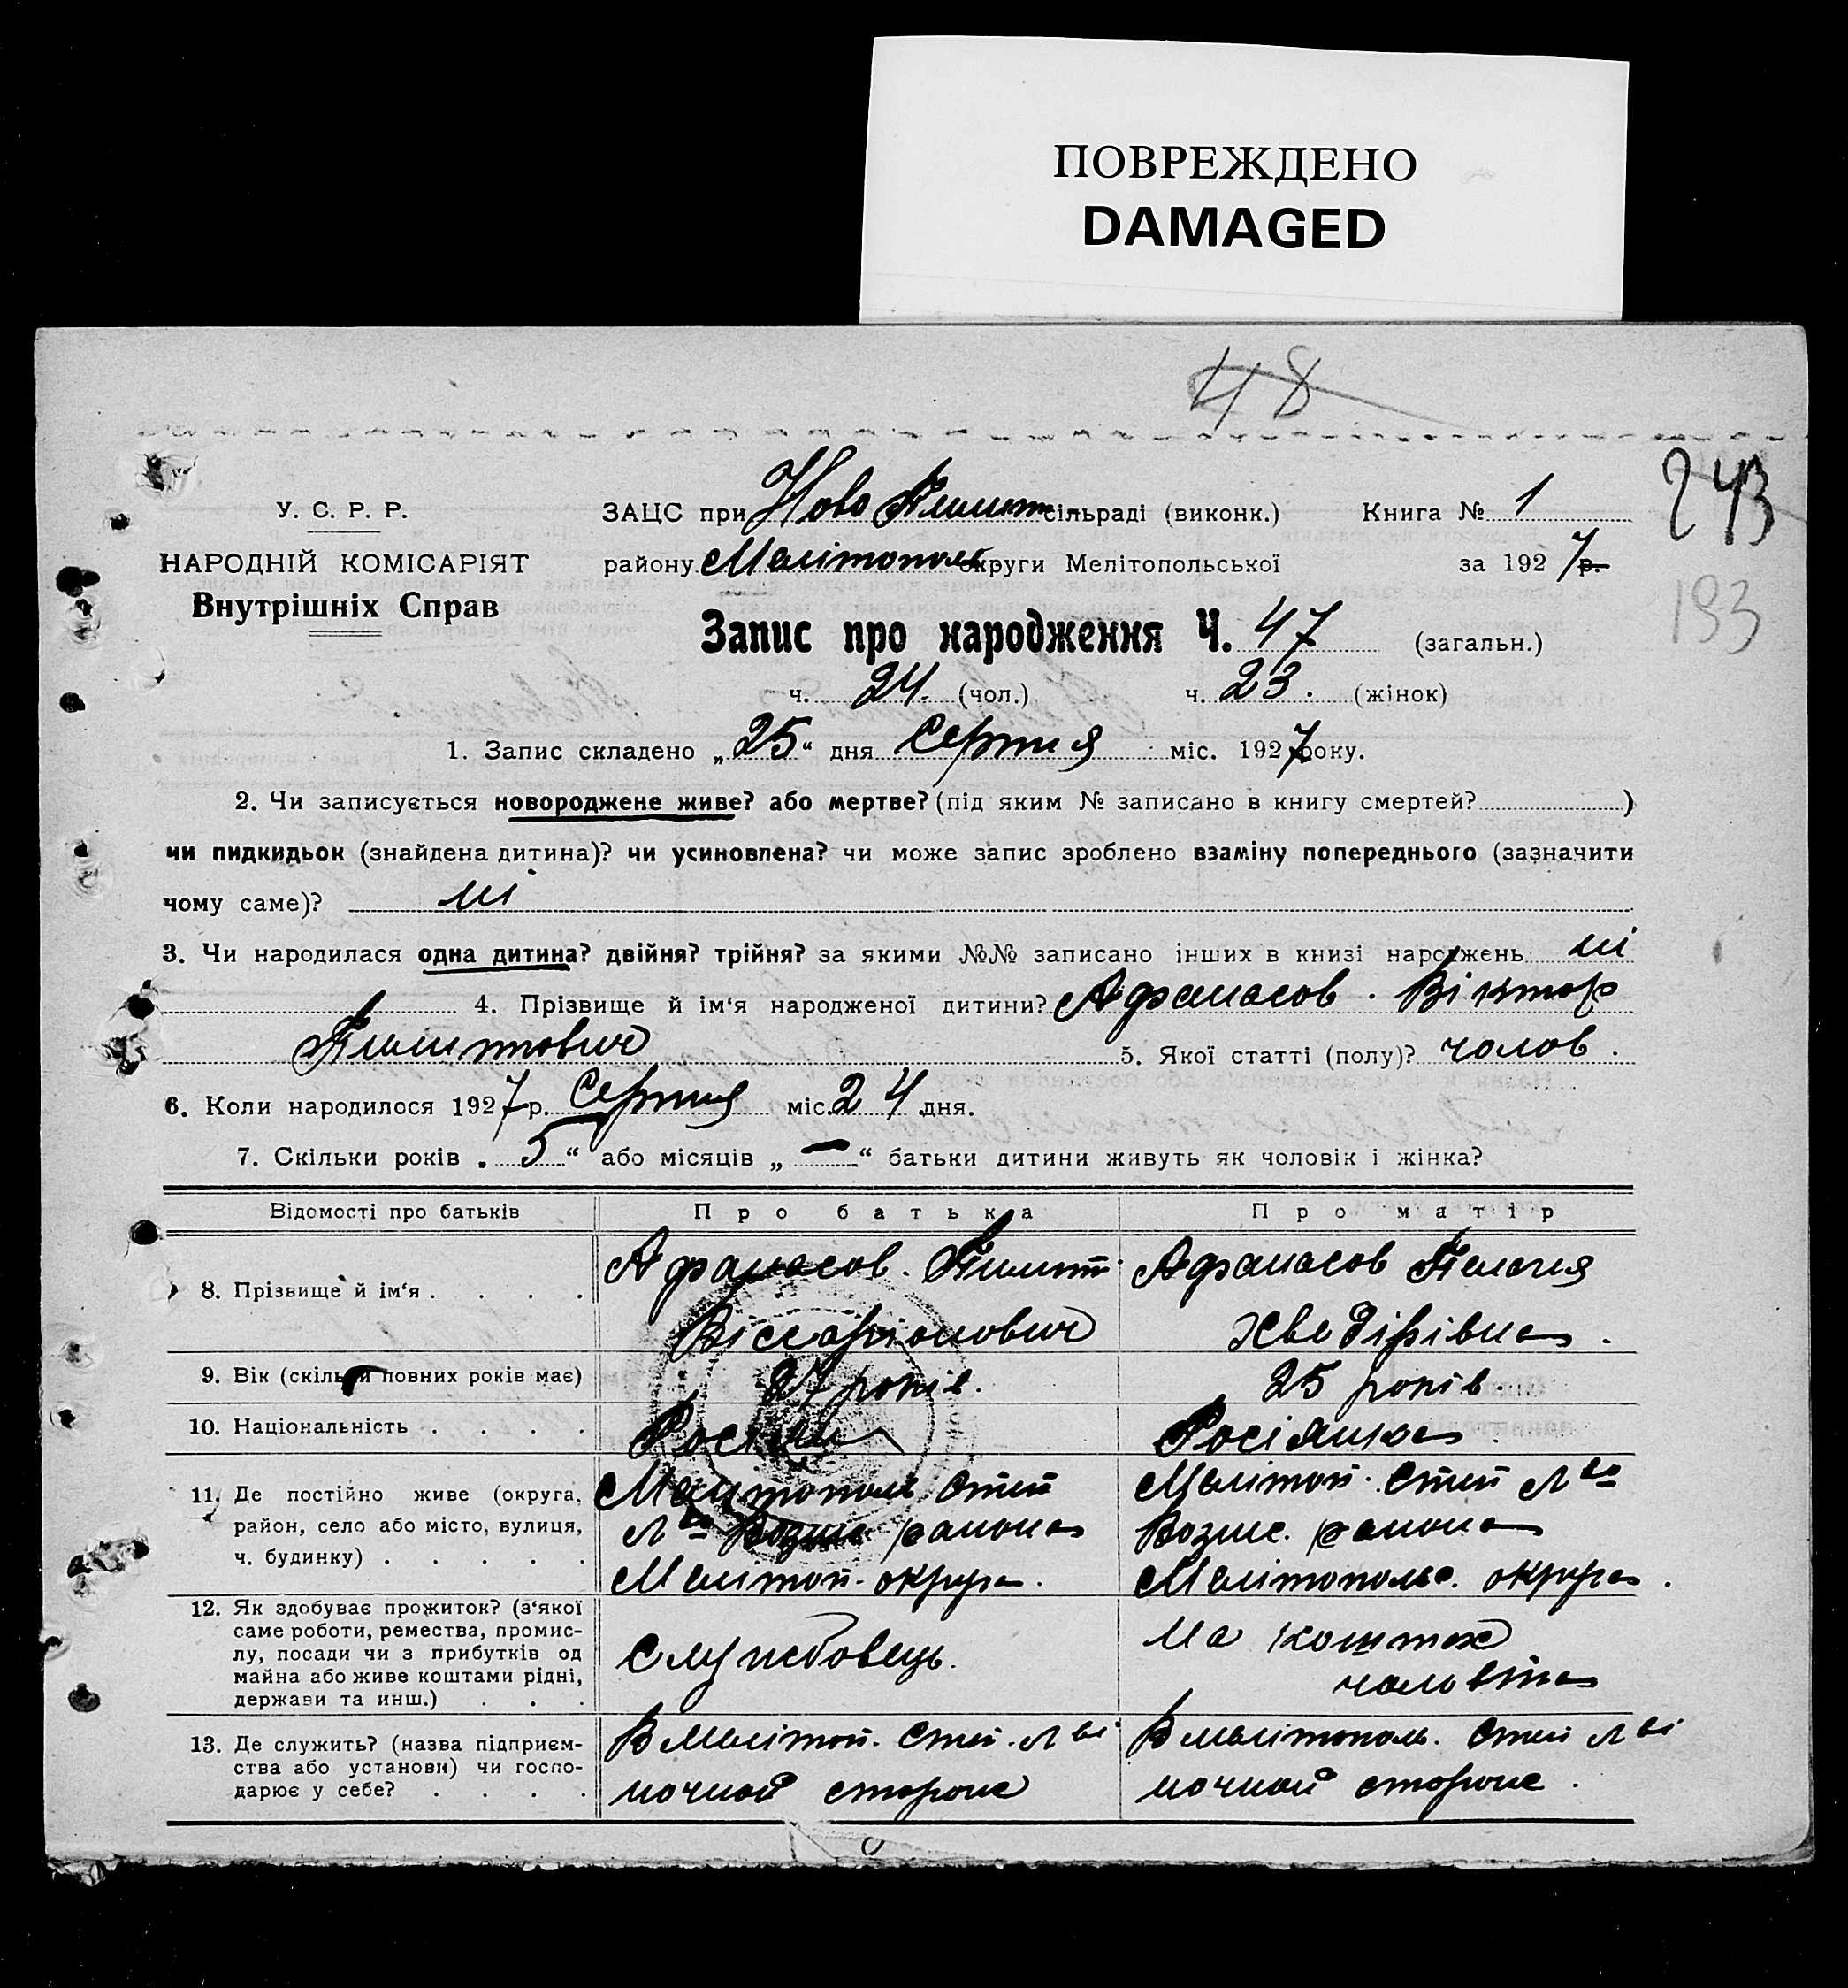 ПОВРЕЖДЕНО
DAMAGED
48
243
193
У. С. Р. Р.
НАРОДНІЙ КОМІСАРІЯТ
Внутрішніх Справ
ЗАЦС при Ново сільраді (виконк.) Книга № 1
району Мелітополь округи Мелітопольської за 1927 р.
Запис про народження Ч. 47 (загальн.)
ч. 24. (чол.) ч. 23. (жінок)
1. Запис складено „25“ дня Серпня міс. 1927 року.
2. Чи записується новороджене живе? або мертве? (під яким № записано в книгу смертей? )
чи пидкидьок (знайдена дитина)? чи усиновлена? чи може запис зроблено взаміну попереднього (зазначити
чому саме)? ні
3. Чи народилася одна дитина? двійня? трійня? за якими №№ записано інших в книзі народжень ні
4. Прізвище й ім‘я народженої дитини? Афанасов. Віктор
5. Якої статті (полу)? чолов.
6. Коли народилося 1927 р. Серпня міс. 24 дня.
7. Скільки років „5“ або місяців „—“ батьки дитини живуть як чоловік і жінка?
Відомості про батьків Про батька Про матір
8. Прізвище й ім‘я . . . . Афанасов. Афанасов Пелагия
Віссаріонович Хведірівна.
9. Вік (скільки повних років має) 27 років. 25 років.
10. Національність . . . . Росіянка
11. Де постійно живе (округа, район, село або місто, вулиця, ч. будинку) . . . . .
Мелітоп. округа. Мелітопольс. округа.
12. Як здобуває прожиток? (з‘якої саме роботи, ремества, промислу, посади чи з прибутків од майна або живе коштами рідні, держави та инш.) . . .
Службовець. На коштах
чоловіка
13. Де служить? (назва підприємства або установи) чи господарює у себе? . . . .